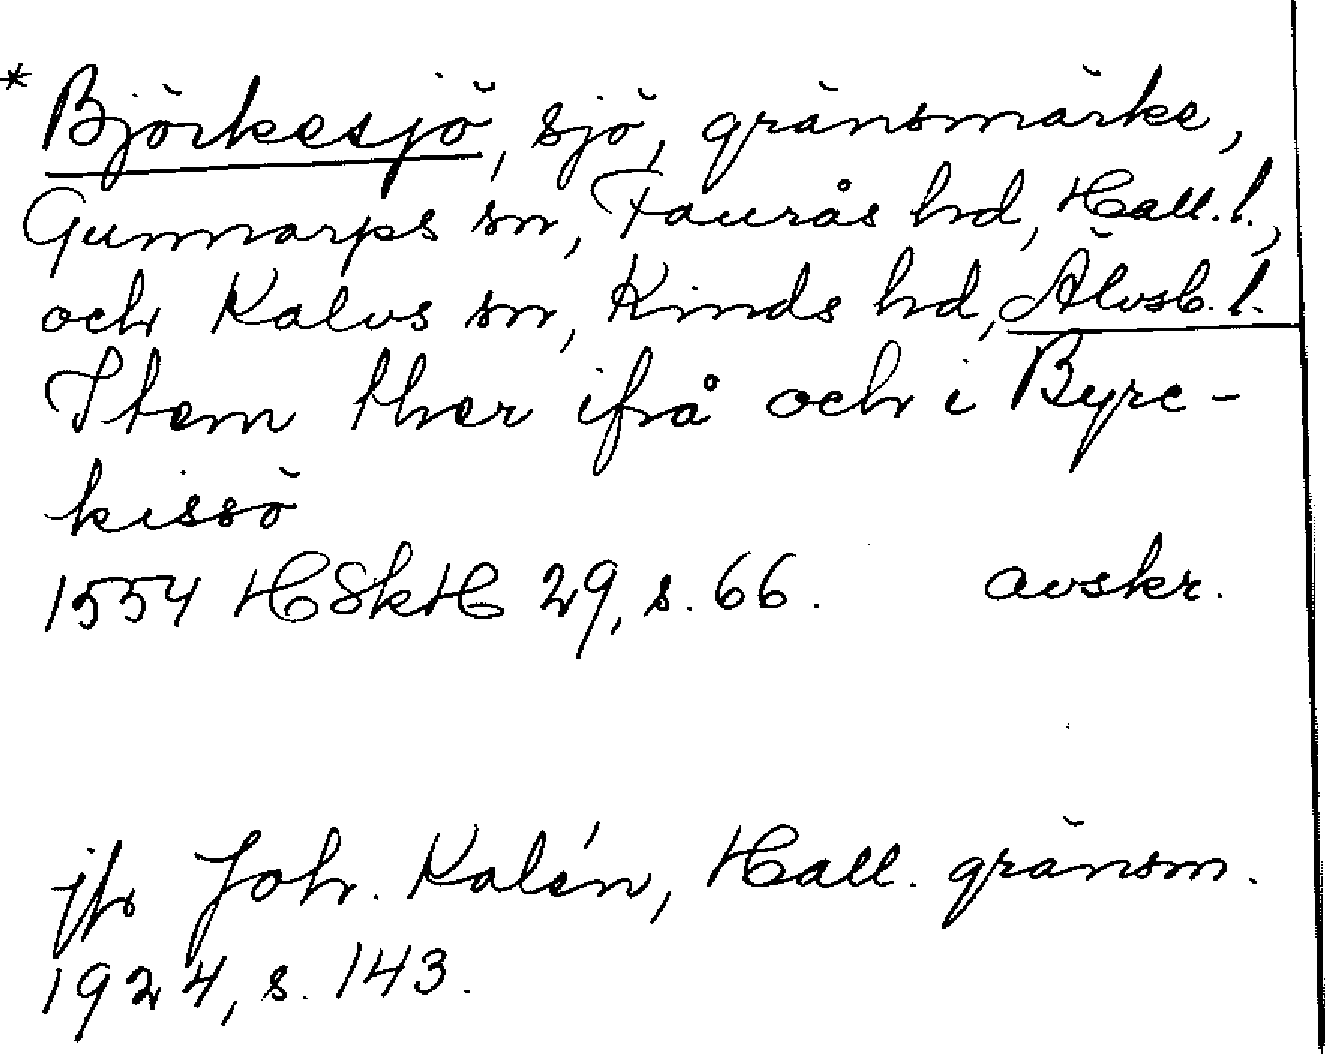 * Björkesjö, sjö, gränsmärke,
Gunnarps sn, Faurås hd, Hall. l.,
och Kalvs sn, Kinds hd, Älvsb. l.
Item ther ifrå och i Byre-
kissö
1554 HSkH 29, s. 66. avskr.
jfr Joh. Kalén, Hall. gränsm.
1924, s. 143.